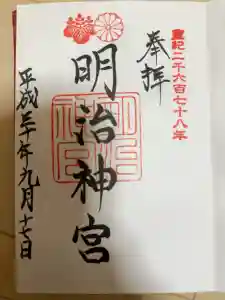 皇紀二千六百七十八年
奉拝
明治神宮
平成三十年九月十七日